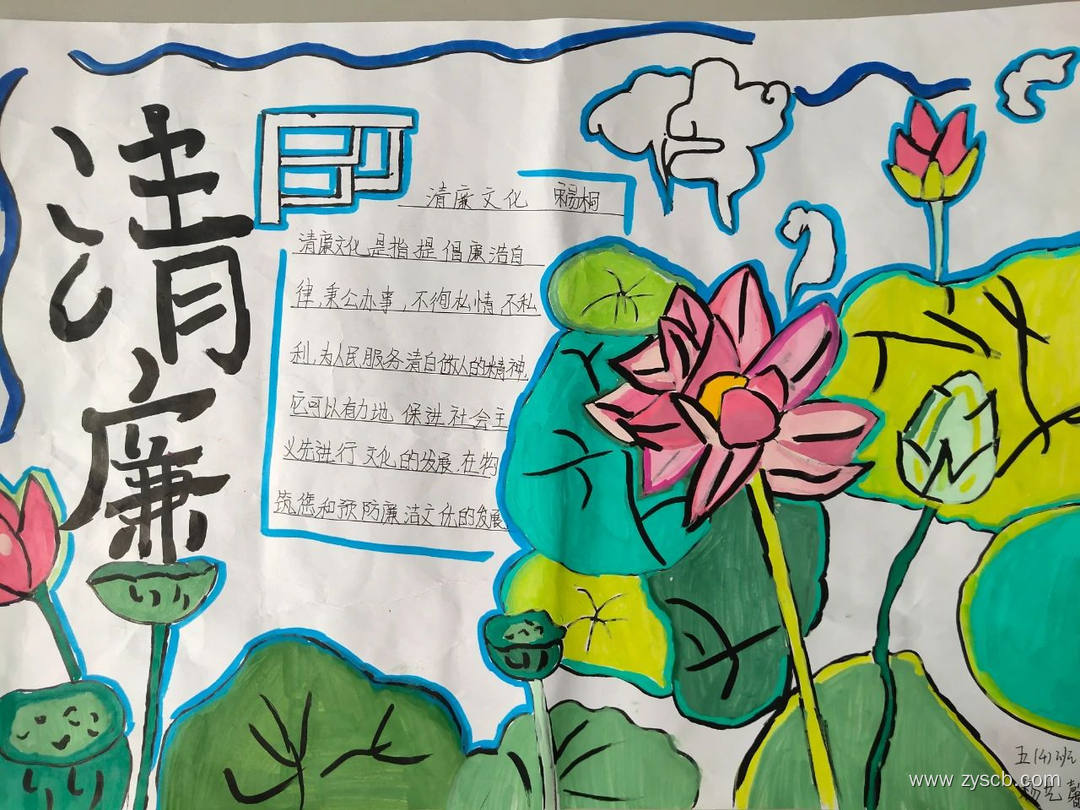 清廉
清廉文化
清廉文化是指提倡廉洁自
律,秉公办事,不徇私情,不私
利,为人民服务清白做人的精神,
它可以有力地 保进社会主
义先进行 文化的发展,在
和预防廉洁文化的发展
五(4)班
www.zyscb.com